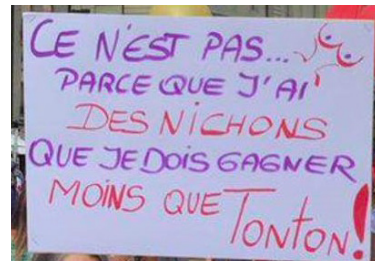 CE N'EST PAS...
PARCE QUE J'AI
DES NICHONS
QUE JE DOIS GAGNER
MOINS QUE TONTON!